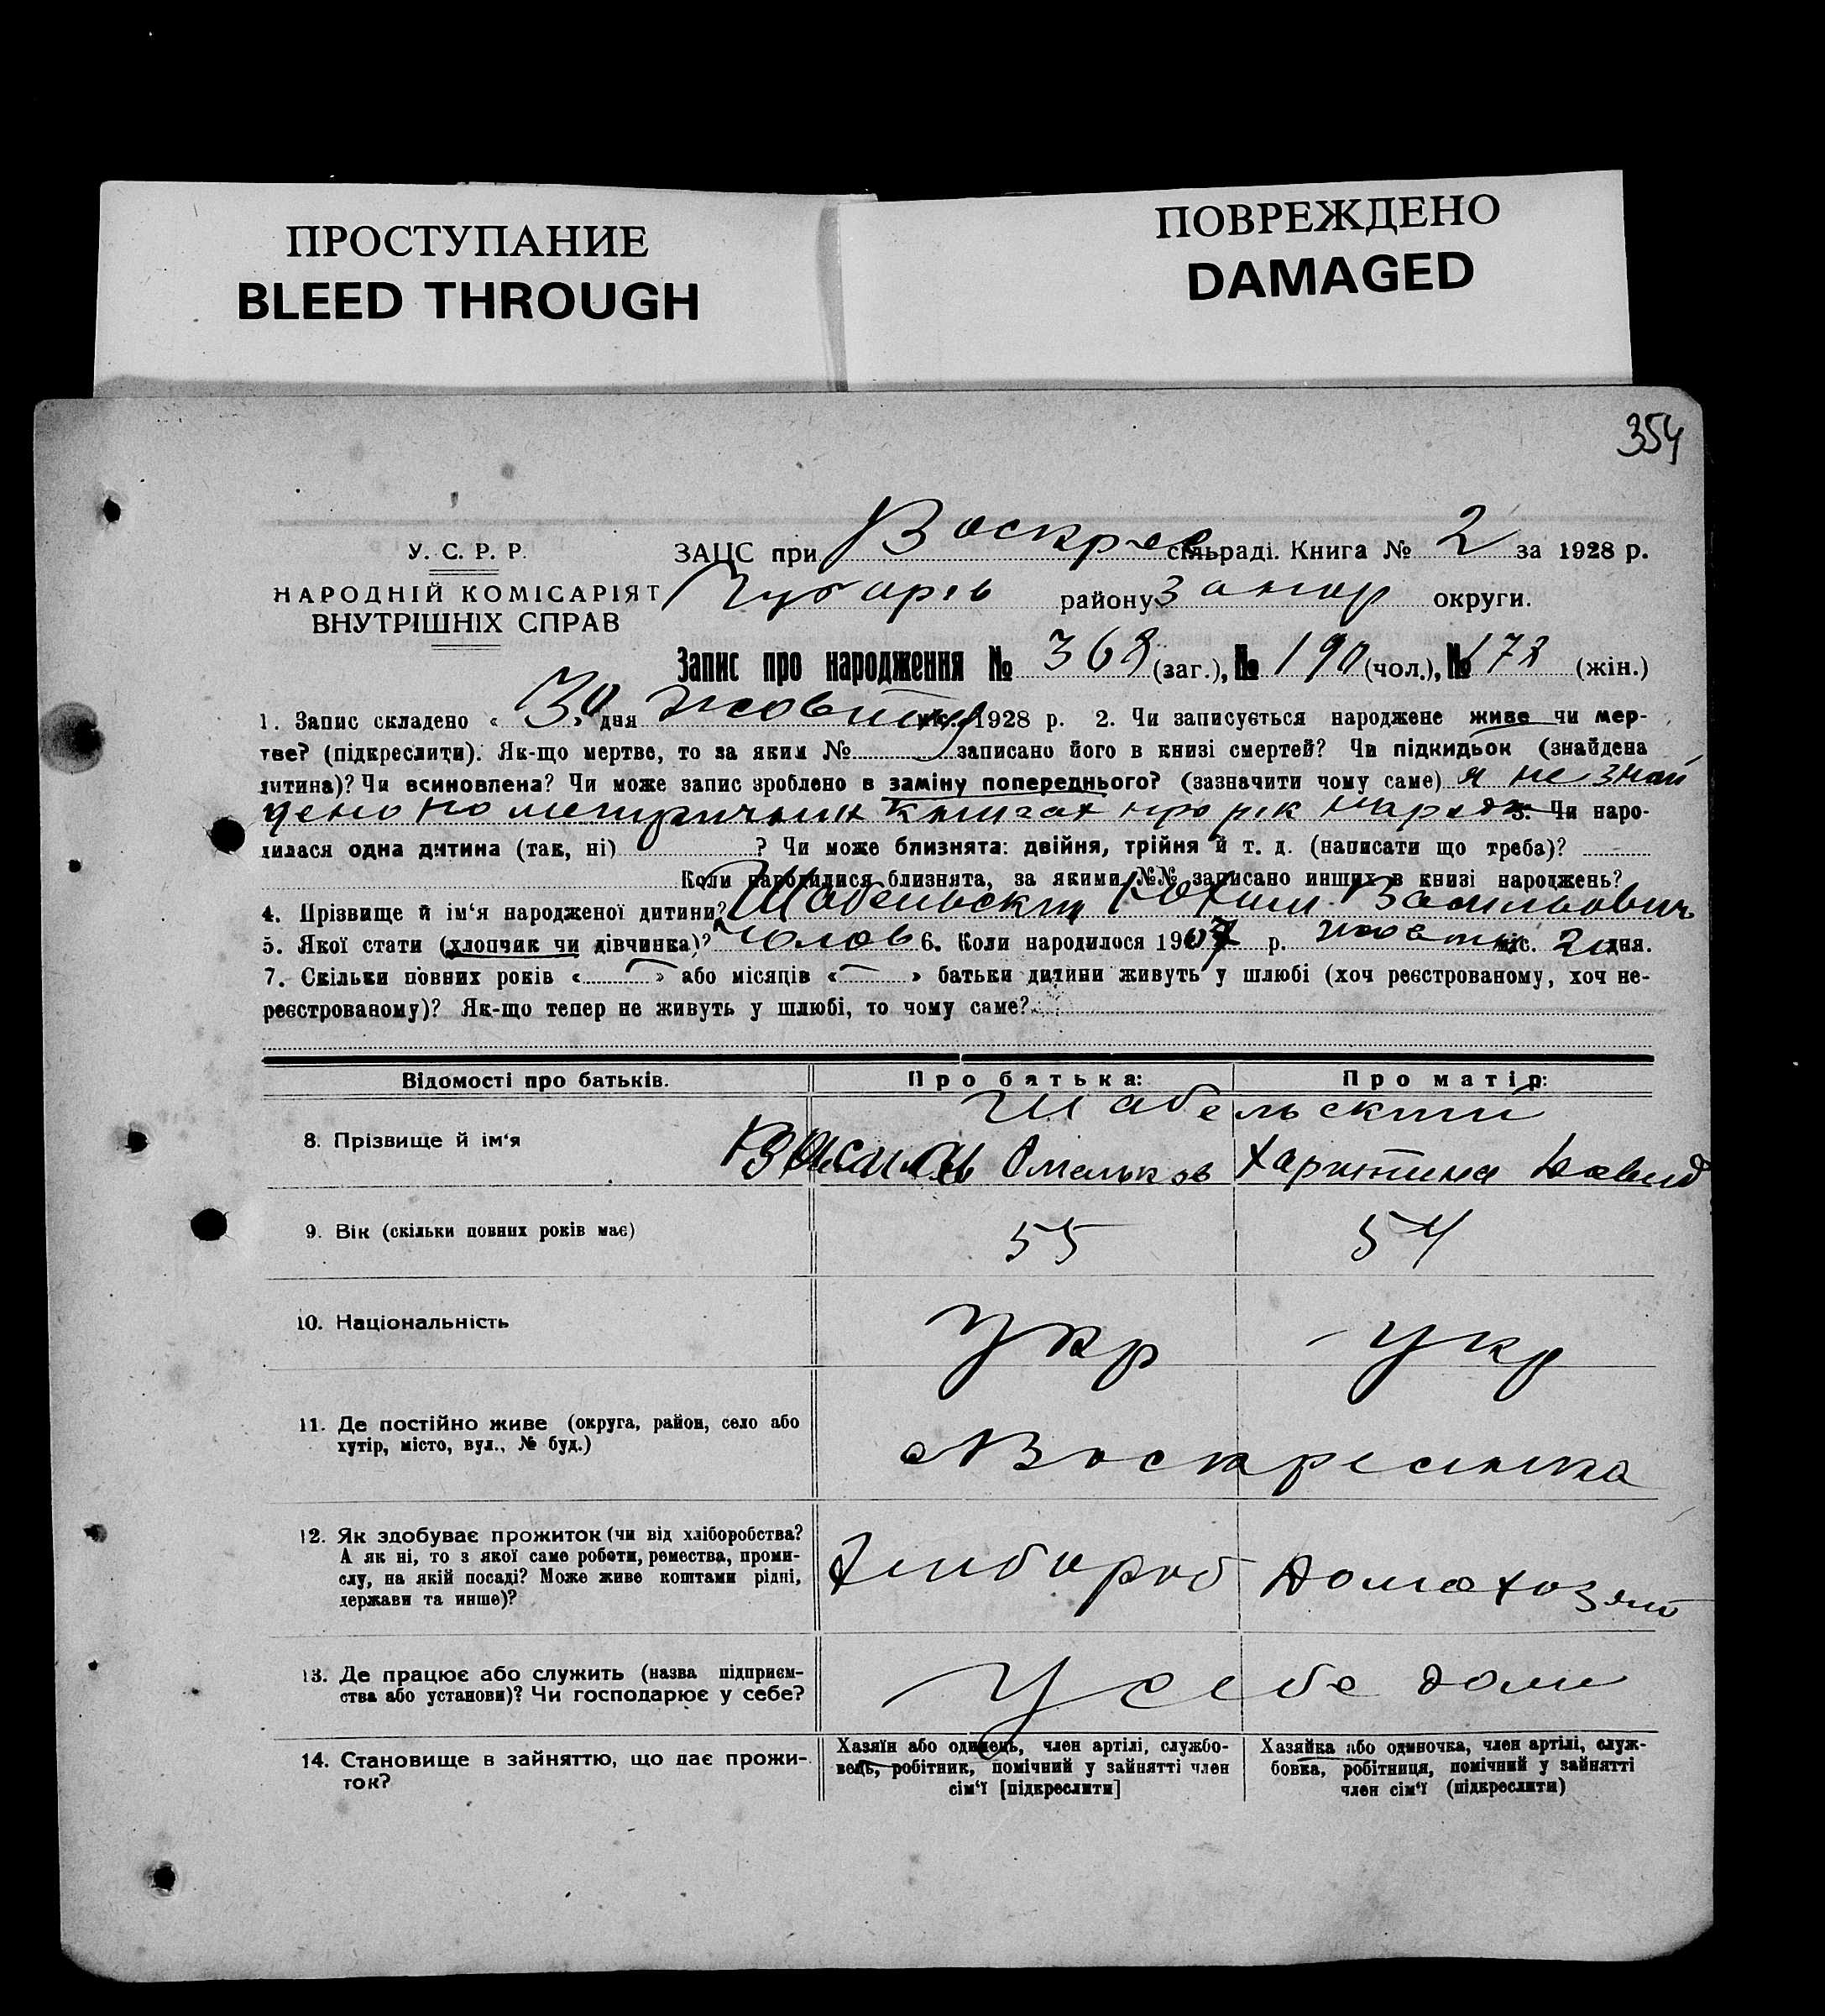 ПРОСТУПАНИЕ
BLEED THROUGH
ПОВРЕЖДЕНО
DAMAGED
354
У. С. Р. Р.
НАРОДНІЙ КОМІСАРІЯТ
ВНУТРІШНІХ СПРАВ
ЗАЦС при Воскрес сільраді. Книга № 2 за 1928 р.
Чубарів району Запор округи.
Запис про народження № 368 (заг.), № 190 (чол.), № 178 (жін.)
1. Запис складено « 30 » дня жовтня міс. 1928 р. 2. Чи записується народжене живе чи мер-
тве? (підкреслити). Як-що мертве, то за яким № записано його в книзі смертей? Чи підкидьок (знайдена
дитина)? Чи всиновлена? Чи може запис зроблено в заміну попереднього? (зазначити чому саме) я не знай
дено по метричних книгах про рік народж 3. Чи наро-
дилася одна дитина (так, ні) ? Чи може близнята: двійня, трійня й т. д. (написати що треба)?
Коли народилися близнята, за якими №№ записано инших в книзі народжень?
4. Прізвище й ім‘я народженої дитини? Шабельский Юхим Васильович
5. Якої стати (хлопчик чи дівчинка)? Чолов 6. Коли народилося 1907 р. жовтня міс. 20 дня.
7. Скільки повних років « » або місяців « » батьки дитини живуть у шлюбі (хоч реєстрованому, хоч не-
реєстрованому)? Як-що тепер не живуть у шлюбі, то чому саме?
Відомості про батьків. Про батька: Про матір:
Шабельский
8. Прізвище й ім‘я Василь Омельков Харитина Давид
9. Вік (скільки повних років має) 55 54
10. Національність Укр Укр
11. Де постійно живе (округа, район, село або
хутір, місто, вул., № буд.)
с Воскресенка
12. Як здобуває прожиток (чи від хліборобства?
А як ні, то з якої саме роботи, ремества, проми-
слу, на якій посаді? Може живе коштами рідні,
держави та инше)?
Хлибороб Домохозяй
13. Де працює або служить (назва підприєм-
ства або установи)? Чи господарює у себе?
У себе дома
14. Становище в зайняттю, що дає прожи-
ток?
Хазяїн або одинець, член артілі, службо-
вець, робітник, помічний у зайнятті член
сім‘ї [підкреслити]
Хазяйка або одиночка, член артілі, служ-
бовка, робітниця, помічний у зайнятті
член сім‘ї (підкреслити)